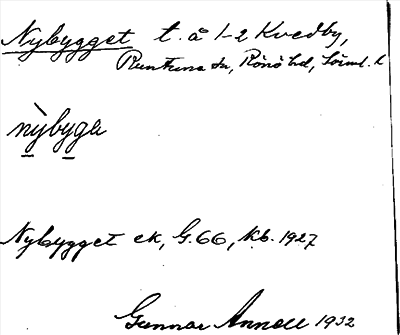 Nybygget t. å 1-2 Kvedby,
Runtuna sn, Rönö hd, Söml. l
nỳbyga
Nybygget ek, G.66, kb. 1927
Gunnar Annell 1932